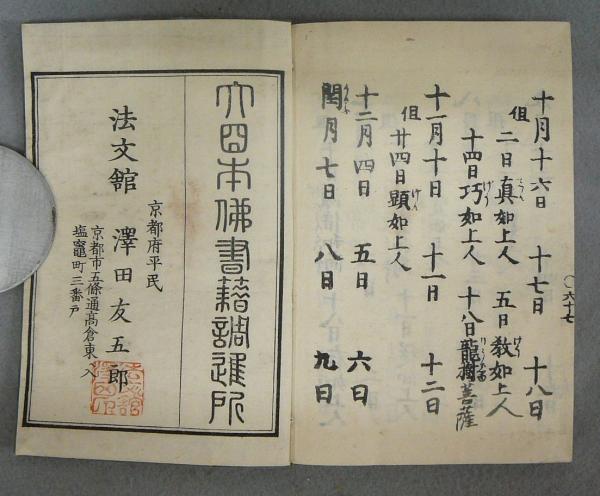 十月十六日 十七日 十八日
但 二日真如上人 五日教如上人
十四日巧如上人 十八日龍樹菩薩
十一月十日 十一日 十二日
但 廿四日顕如上人
十二月四日 五日 六日
閏月七日 八日 九日
〇六十七
大日本佛書籍調進所
京都府平民
京都市五條通高倉東入
塩竈町三番戸
法文館 澤田友五郎